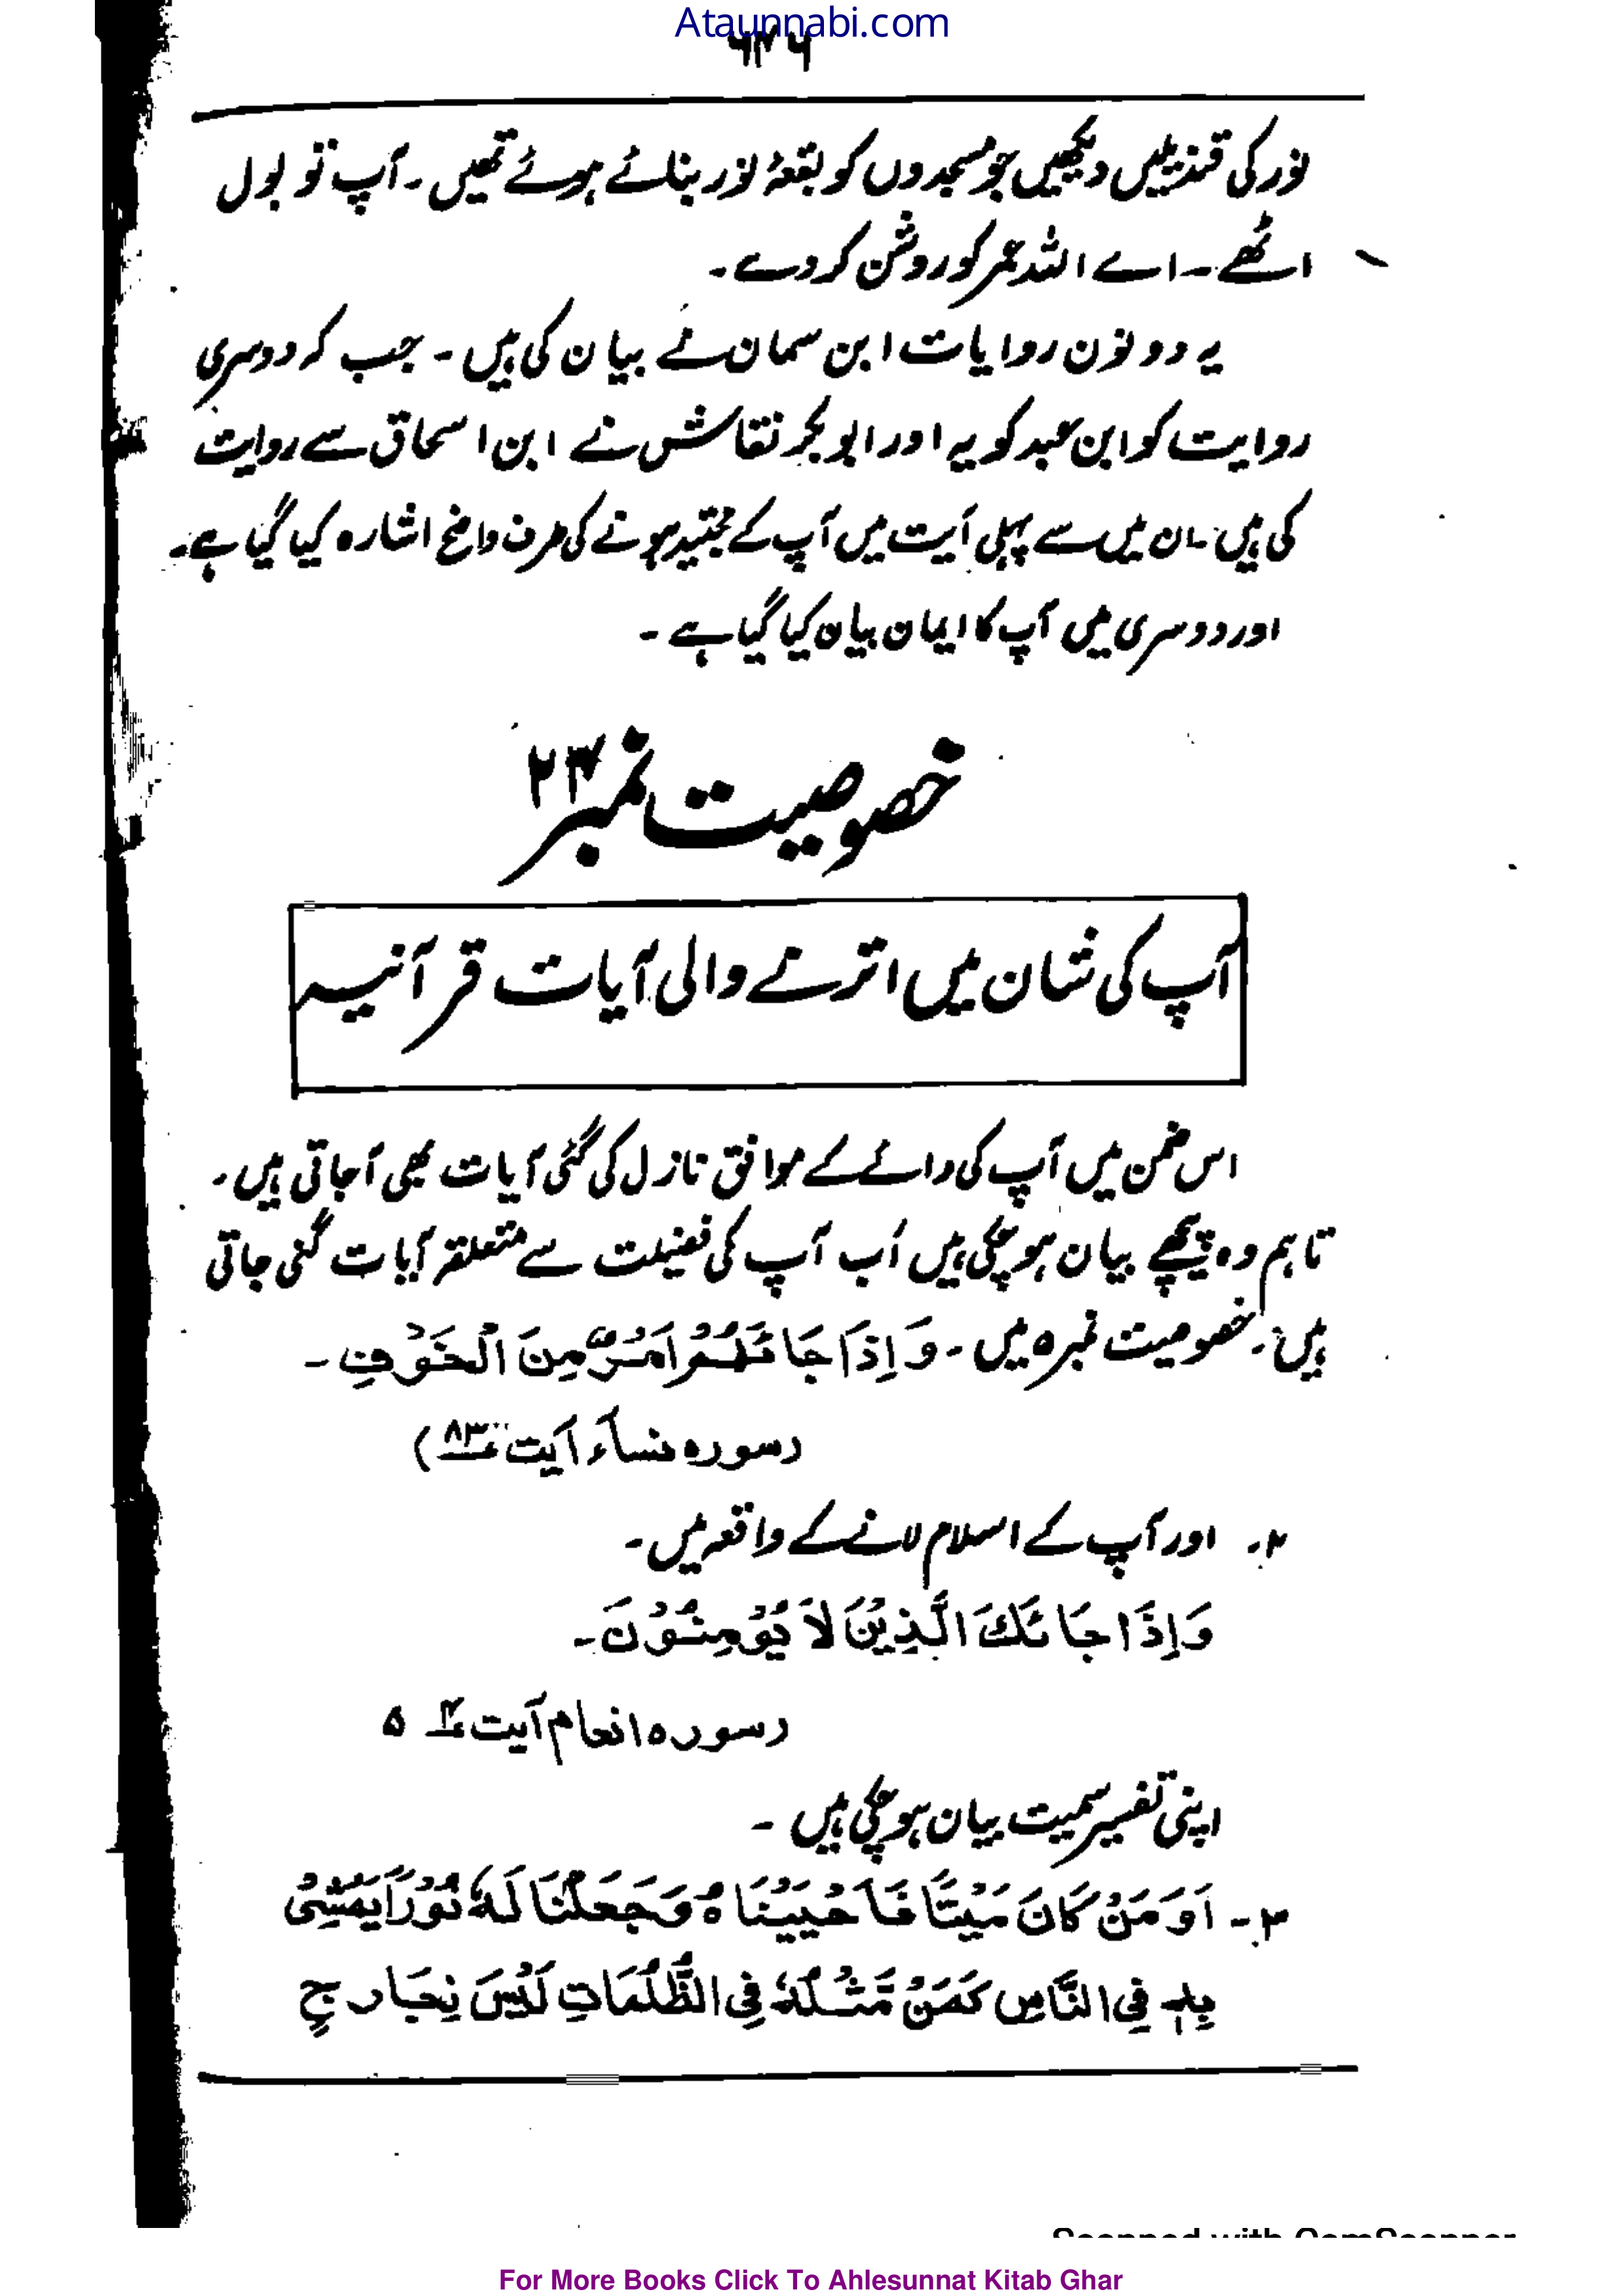 Ataunnabi.com
۶۴۶
نور کی قندیلیں دیکھیں جو مسجدوں کو بقعۂ نور بنائے ہوئے تھیں۔ آپ تو بول
اٹھے۔ اے اللہ عمر کو روشن کر دے۔
یہ دونوں روایات ابن سمان نے بیان کی ہیں۔ جب کہ دوسری
روایت کو ابن عبد کویہ اور ابو بکر نقاش نے ابن اسحاق سے روایت
کی ہیں۔ ان میں سے پہلی آیت میں آپ کے مجتہد ہونے کی طرف واضح اشارہ کیا گیا ہے۔
اور دوسری میں آپ کا ایمان بیان کیا گیا ہے۔
خصوصیت نمبر ۲۴
آپ کی شان میں اترنے والی آیات قرآنیہ
اس ضمن میں آپ کی رائے کے موافق نازل کی گئی آیات بھی آجاتی ہیں۔
تاہم وہ پیچھے بیان ہو چکی ہیں اب آپ کی فضیلت سے متعلقہ آیات گنی جاتی
ہیں۔ خصوصیت نمبر ۵ میں۔ وَاِذَا جَائَهُمْ اَمْرٌ مِنَ الْخَوْفِ۔
(سورہ نساء آیت ۸۳)
۲۔ اور آپ کے اسلام لانے کے واقعہ میں۔
وَاِذَا جَائَكَ الَّذِيْنَ لَا يُؤْمِنُوْنَ۔
(سورہ انعام آیت ۵
اپنی تفسیر سمیت بیان ہو چکی ہیں۔
۳۔ اَوَمَنْ كَانَ مَيْتًا فَاَحْيَيْنَاهُ وَجَعَلْنَا لَهٗ نُوْرًا يَمْشِىْ
بِهٖ فِى النَّاسِ كَمَنْ مَّثَلُهٗ فِى الظُّلُمَاتِ لَيْسَ بِخَارِجٍ
Scanned with CamScanner
For More Books Click To Ahlesunnat Kitab Ghar